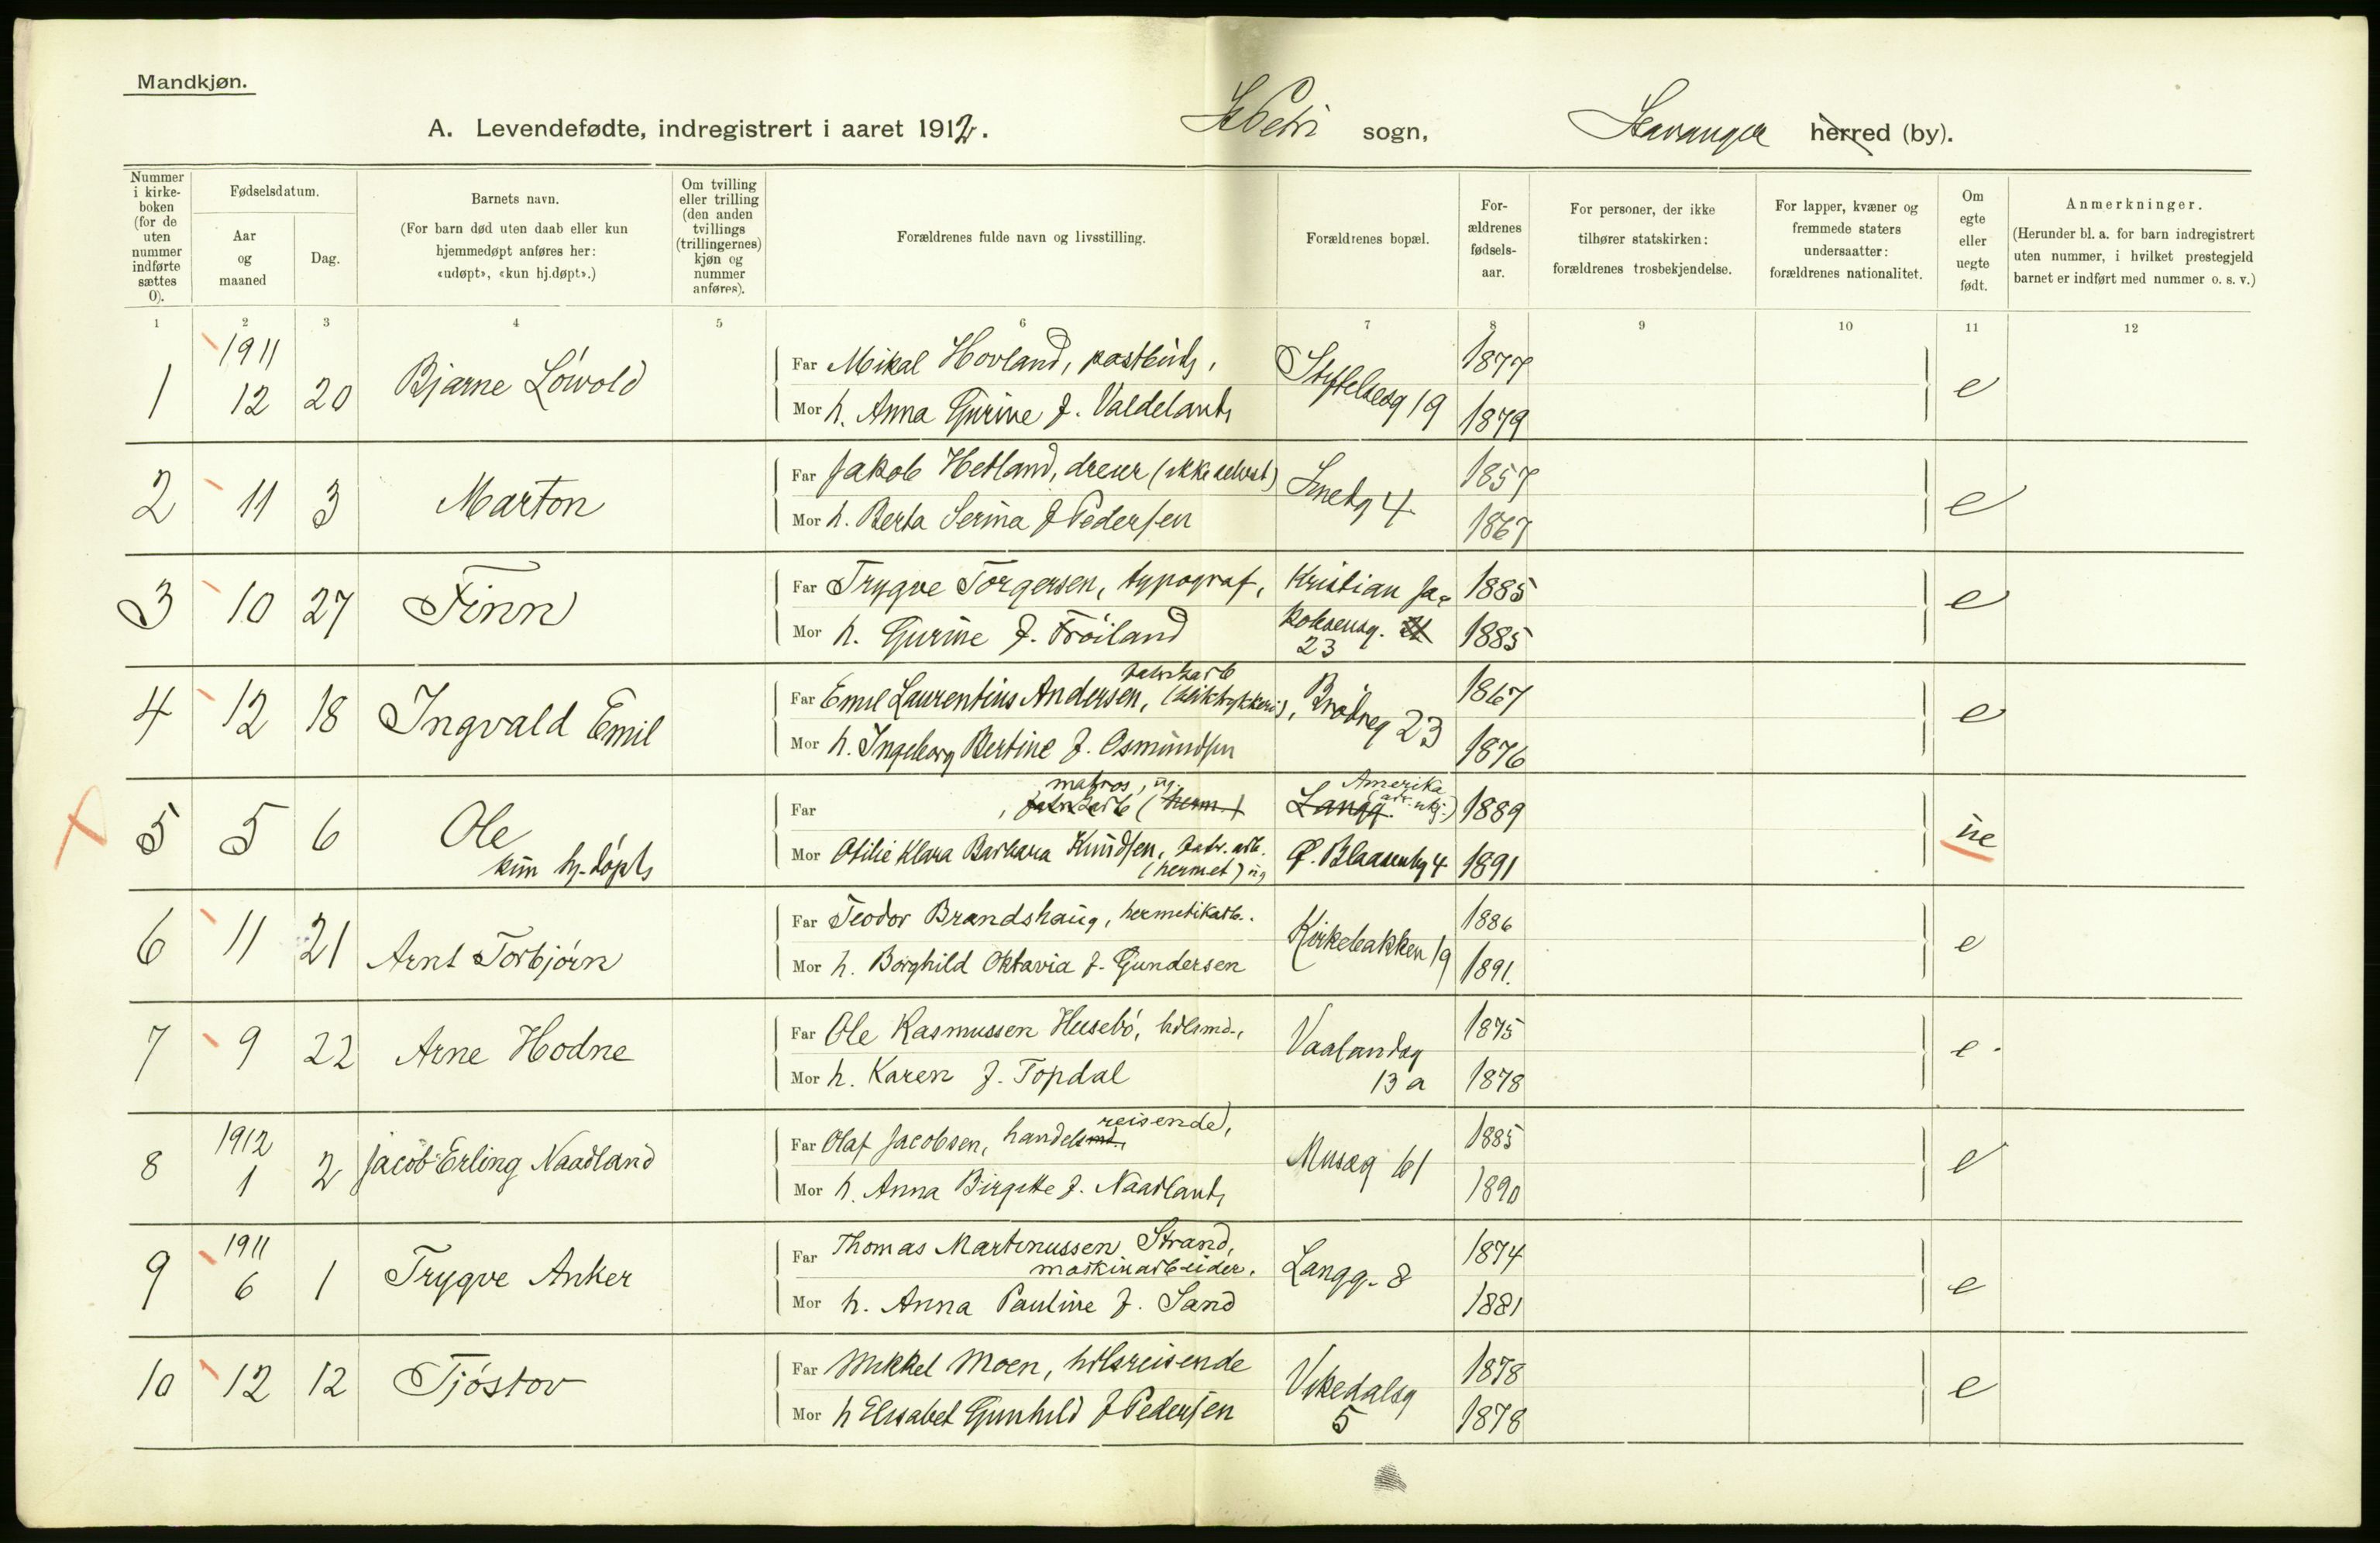 Mandkjøn.
A. Levendefødte, indregistrert i aaret 1912. St Petri sogn, Stavanger herred (by).
Nummer i kirkeboken (for de uten nummer indførte sættes 0).
Fødselsdatum.
Aar og maaned
Dag.
Barnets navn.
(For barn død uten daab eller kun hjemmedøpt anføres her: «udøpt», «kun hj.døpt».)
Om tvilling eller trilling (den anden tvillings (trillingernes) kjøn og nummer anføres).
Forældrenes fulde navn og livsstilling.
Forældrenes bopæl.
Forældrenes fødselsaar.
For personer, der ikke tilhører statskirken: forældrenes trosbekjendelse.
For lapper, kvæner og fremmede staters undersaatter: forældrenes nationalitet.
Om egte eller uegte født.
Anmerkninger.
(Herunder bl. a. for barn indregistrert uten nummer, i hvilket prestegjeld barnet er indført med nummer o. s. v.)
1 2 3 4 5 6 7 8 9 10 11 12
1911
1 12 20 Bjarne Lövold
Far Mikal Hovland, postbud, Stiftelsesg 19 1877 e
Mor h. Anna Gurine f. Valdeland 1879
2 11 3 Marton
Far Jakob Hetland, dreier (ikke selvst) Smedg 4 1857 e
Mor h. Berta Serina f Pedersen 1867
3 10 27 Finn
Far Trygve Torgersen, typograf, Kristian Ja- 1885 e
Mor h. Gurine f. Fröiland kobsensg. 23 1885
4 12 18 Ingvald Emil
fabrikarb
Far Emil Laurentius Andersen, (bliktrykkeri), Brödreg 23 1867 e
Mor h. Ingeborg Bertine f. Osmundsen 1876
matros, ug. Amerika
5 5 6 Ole
kun hj.döpt
Far , fabrikarb (herm.) Langg. 1889 ue
Mor Otilie Klara Barbara Knudsen, fabr. arb. (hermet) ug Ø. Blaasenbg 4 1891
6 11 21 Arnt Torbjörn
Far Teodor Brandshaug, hermetikarb. Kirkebakken 19 1886 e
Mor h. Borghild Oktavia f. Gundersen 1891.
7 9 22 Arne Hodne
Far Ole Rasmussen Husebö, hdlsmd., Vaalandsg 13 a 1875 e
Mor h. Karen f. Topdal 1878
1912
8 1 2 Jacob Erling Naadland
reisende,
Far Olaf Jacobsen, handelsmd., Museg 61 1885 e
Mor h. Anna Birgitte f. Naadland 1890
1911
9 6 1 Trygve Anker
Far Thomas Martinussen Strand, maskinarbeider. Langg. 8 1874 e
Mor h. Anna Pauline f. Sand 1881
10 12 12 Tjöstov
Far Mikkel Moen, hdlsreisende Vikedalsg 5 1878 e
Mor h Elisabet Gunhild f Pedersen 1878